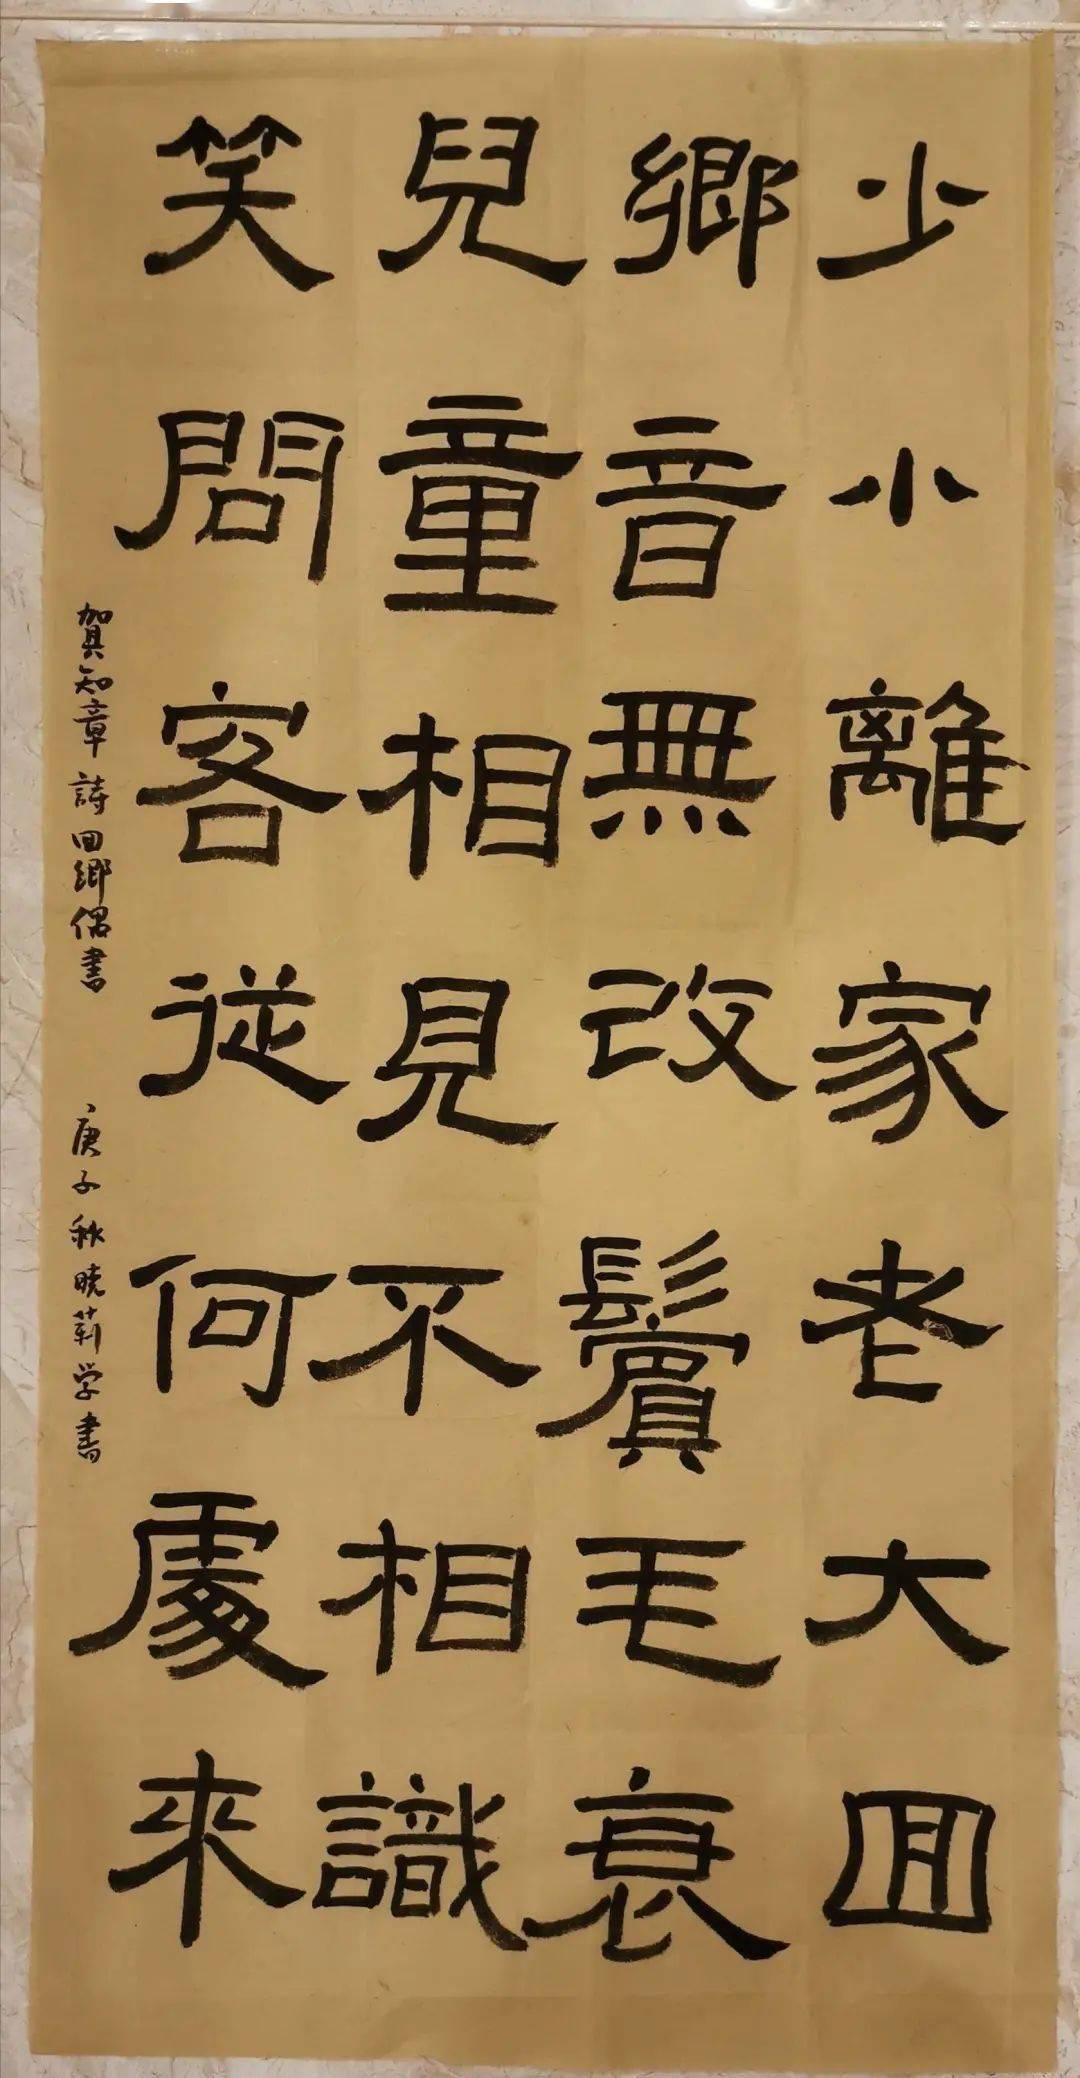 少小離家老大囬
鄉音無改鬢毛衰
兒童相見不相識
笑問客從何處來
賀知章詩回鄉偶書
庚子秋曉莉学書